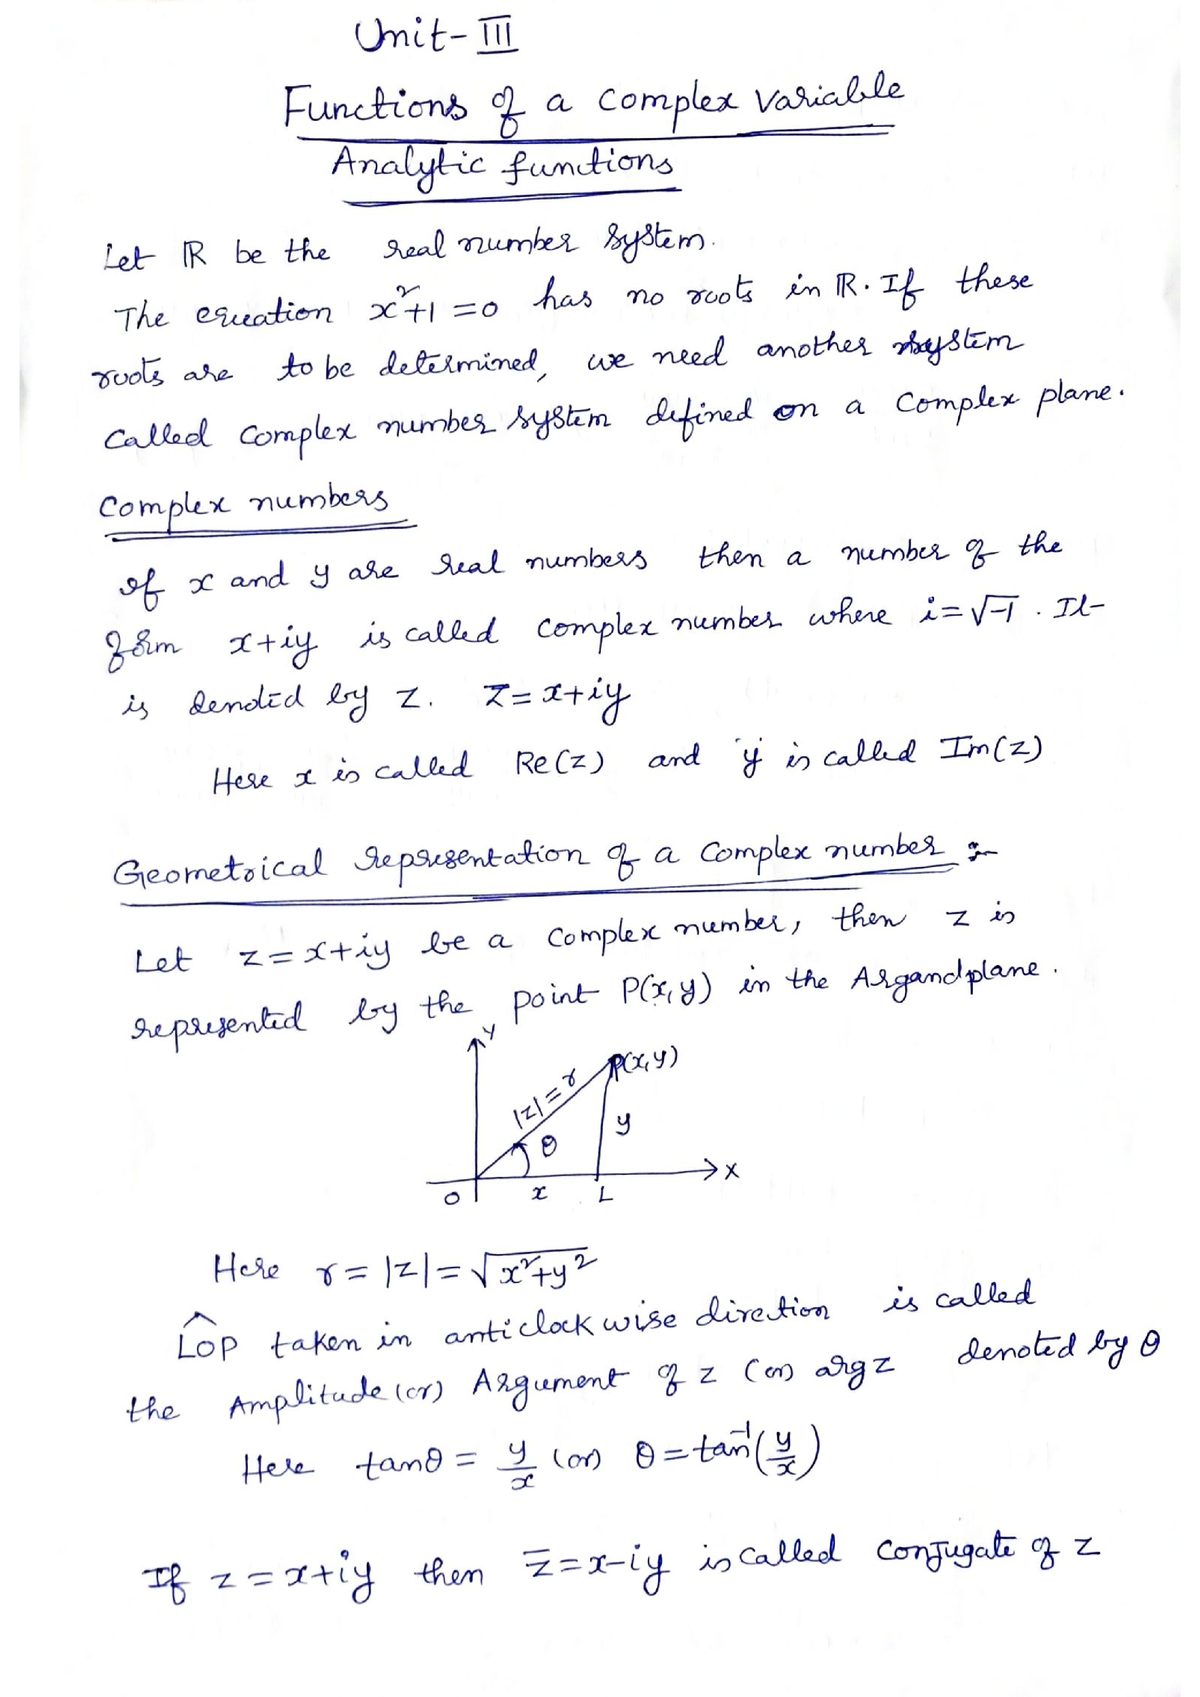 Unit-III
Functions of a complex variable
Analytic functions
Let ℝ be the real number system.
The equation x²+1=0 has no roots in ℝ. If these
roots are to be determined, we need another system
called complex number system defined on a complex plane.
Complex numbers
If x and y are real numbers then a number of the
form x+iy is called complex number where i=√-1. It
is denoted by z. z=x+iy
Here x is called Re(z) and 'y' is called Im(z)
Geometrical representation of a complex number :-
Let z=x+iy be a complex number, then z is
represented by the point P(x,y) in the Argand plane.
Y
P(x,y)
|z|=r
θ
y
X
O x L
Here r=|z|=√x²+y²
LÔP taken in anticlockwise direction is called
the Amplitude (or) Argument of z (or) arg z denoted by θ
Here tanθ = y/x (or) θ=tan⁻¹(y/x)
If z=x+iy then z̄=x-iy is called conjugate of z